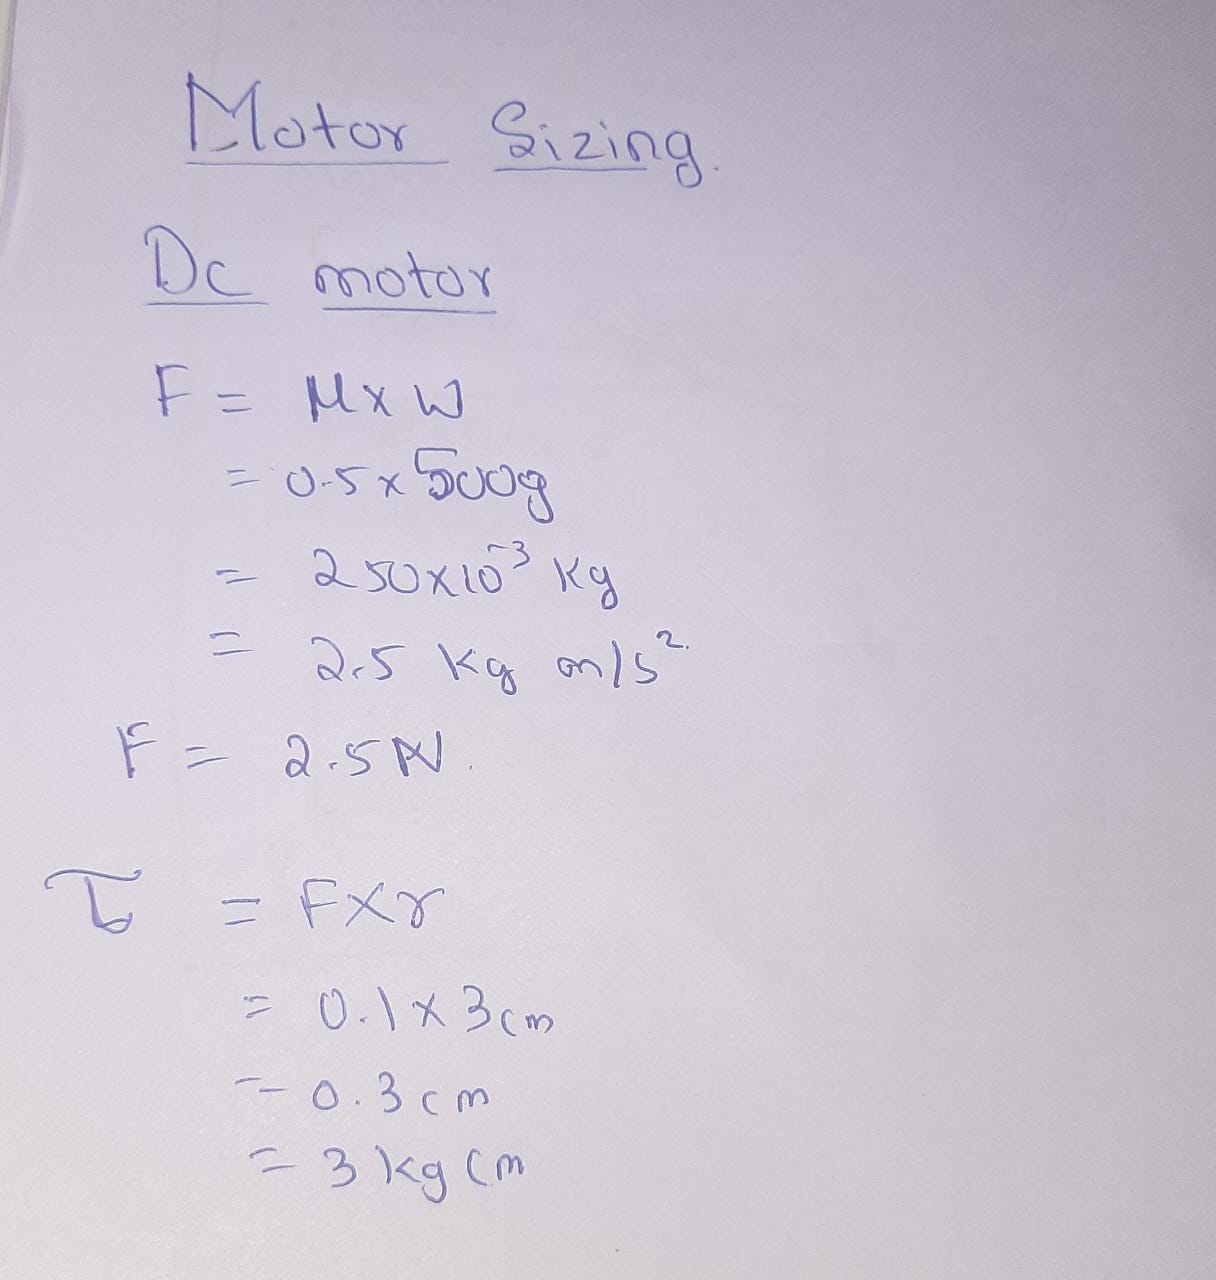 Motor Sizing.
Dc motor
F = μ x W
= 0.5 x 500g
= 250x10⁻³ kg
= 2.5 kg m/s².
F = 2.5 N.
τ = F x r
= 0.1 x 3cm
= 0.3 cm
= 3 kg cm